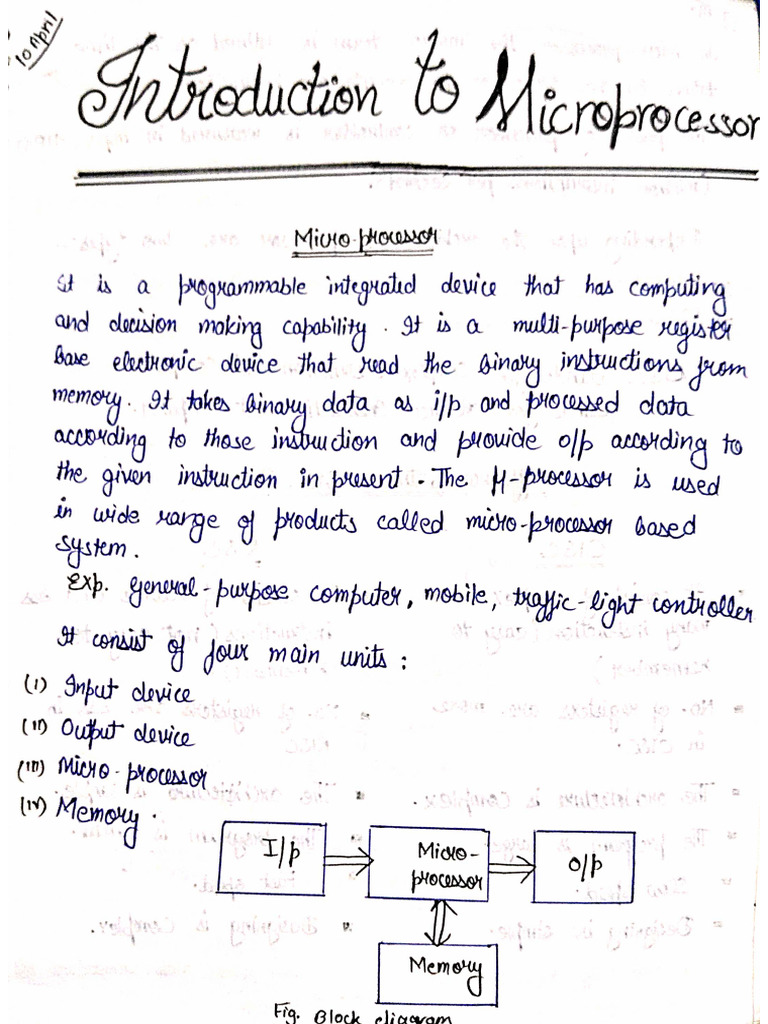 10 April
Introduction to Microprocessor
Micro-processor
It is a programmable integrated device that has computing
and decision making capability. It is a multi-purpose register
base electronic device that read the binary instructions from
memory. It takes binary data as i/p and processed data
according to those instruction and provide o/p according to
the given instruction in present. The μ-processor is used
in wide range of products called micro-processor based
system.
Exp. General-purpose computer, mobile, traffic-light controller
It consist of four main units :
(I) Input device
(II) Output device
(III) Micro-processor
(IV) Memory.
I/p
Micro-
processor
O/p
Memory
Fig. Block diagram